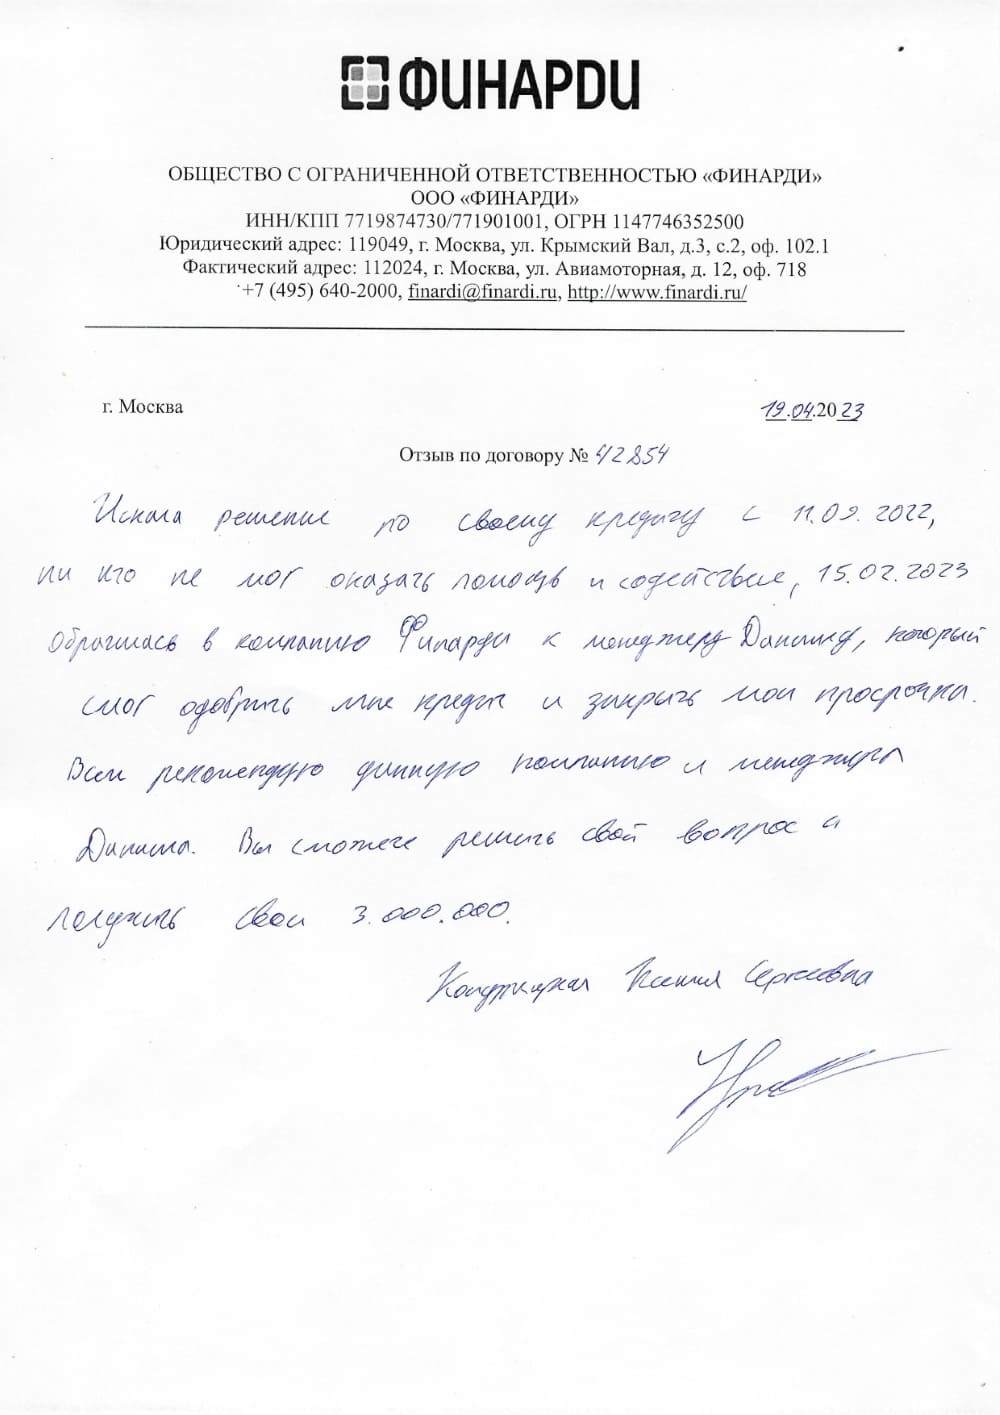 ФИНАРДИ
ОБЩЕСТВО С ОГРАНИЧЕННОЙ ОТВЕТСТВЕННОСТЬЮ «ФИНАРДИ»
ООО «ФИНАРДИ»
ИНН/КПП 7719874730/771901001, ОГРН 1147746352500
Юридический адрес: 119049, г. Москва, ул. Крымский Вал, д.3, с.2, оф. 102.1
Фактический адрес: 112024, г. Москва, ул. Авиамоторная, д. 12, оф. 718
+7 (495) 640-2000, finardi@finardi.ru, http://www.finardi.ru/
г. Москва 19.04.2023
Отзыв по договору № 42854
Искала решение по своему кредиту с 11.09.2022,
ни кто не мог оказать помощь и содействие, 15.02.2023
обратилась в компанию Финарди к менеджеру Данилу, который
смог одобрить мне кредит и закрыть мои просрочки.
Всем рекомендую данную компанию и менеджера
Данила. Вы сможете решить свой вопрос и
получить свои 3.000.000.
Ксения Сергеевна